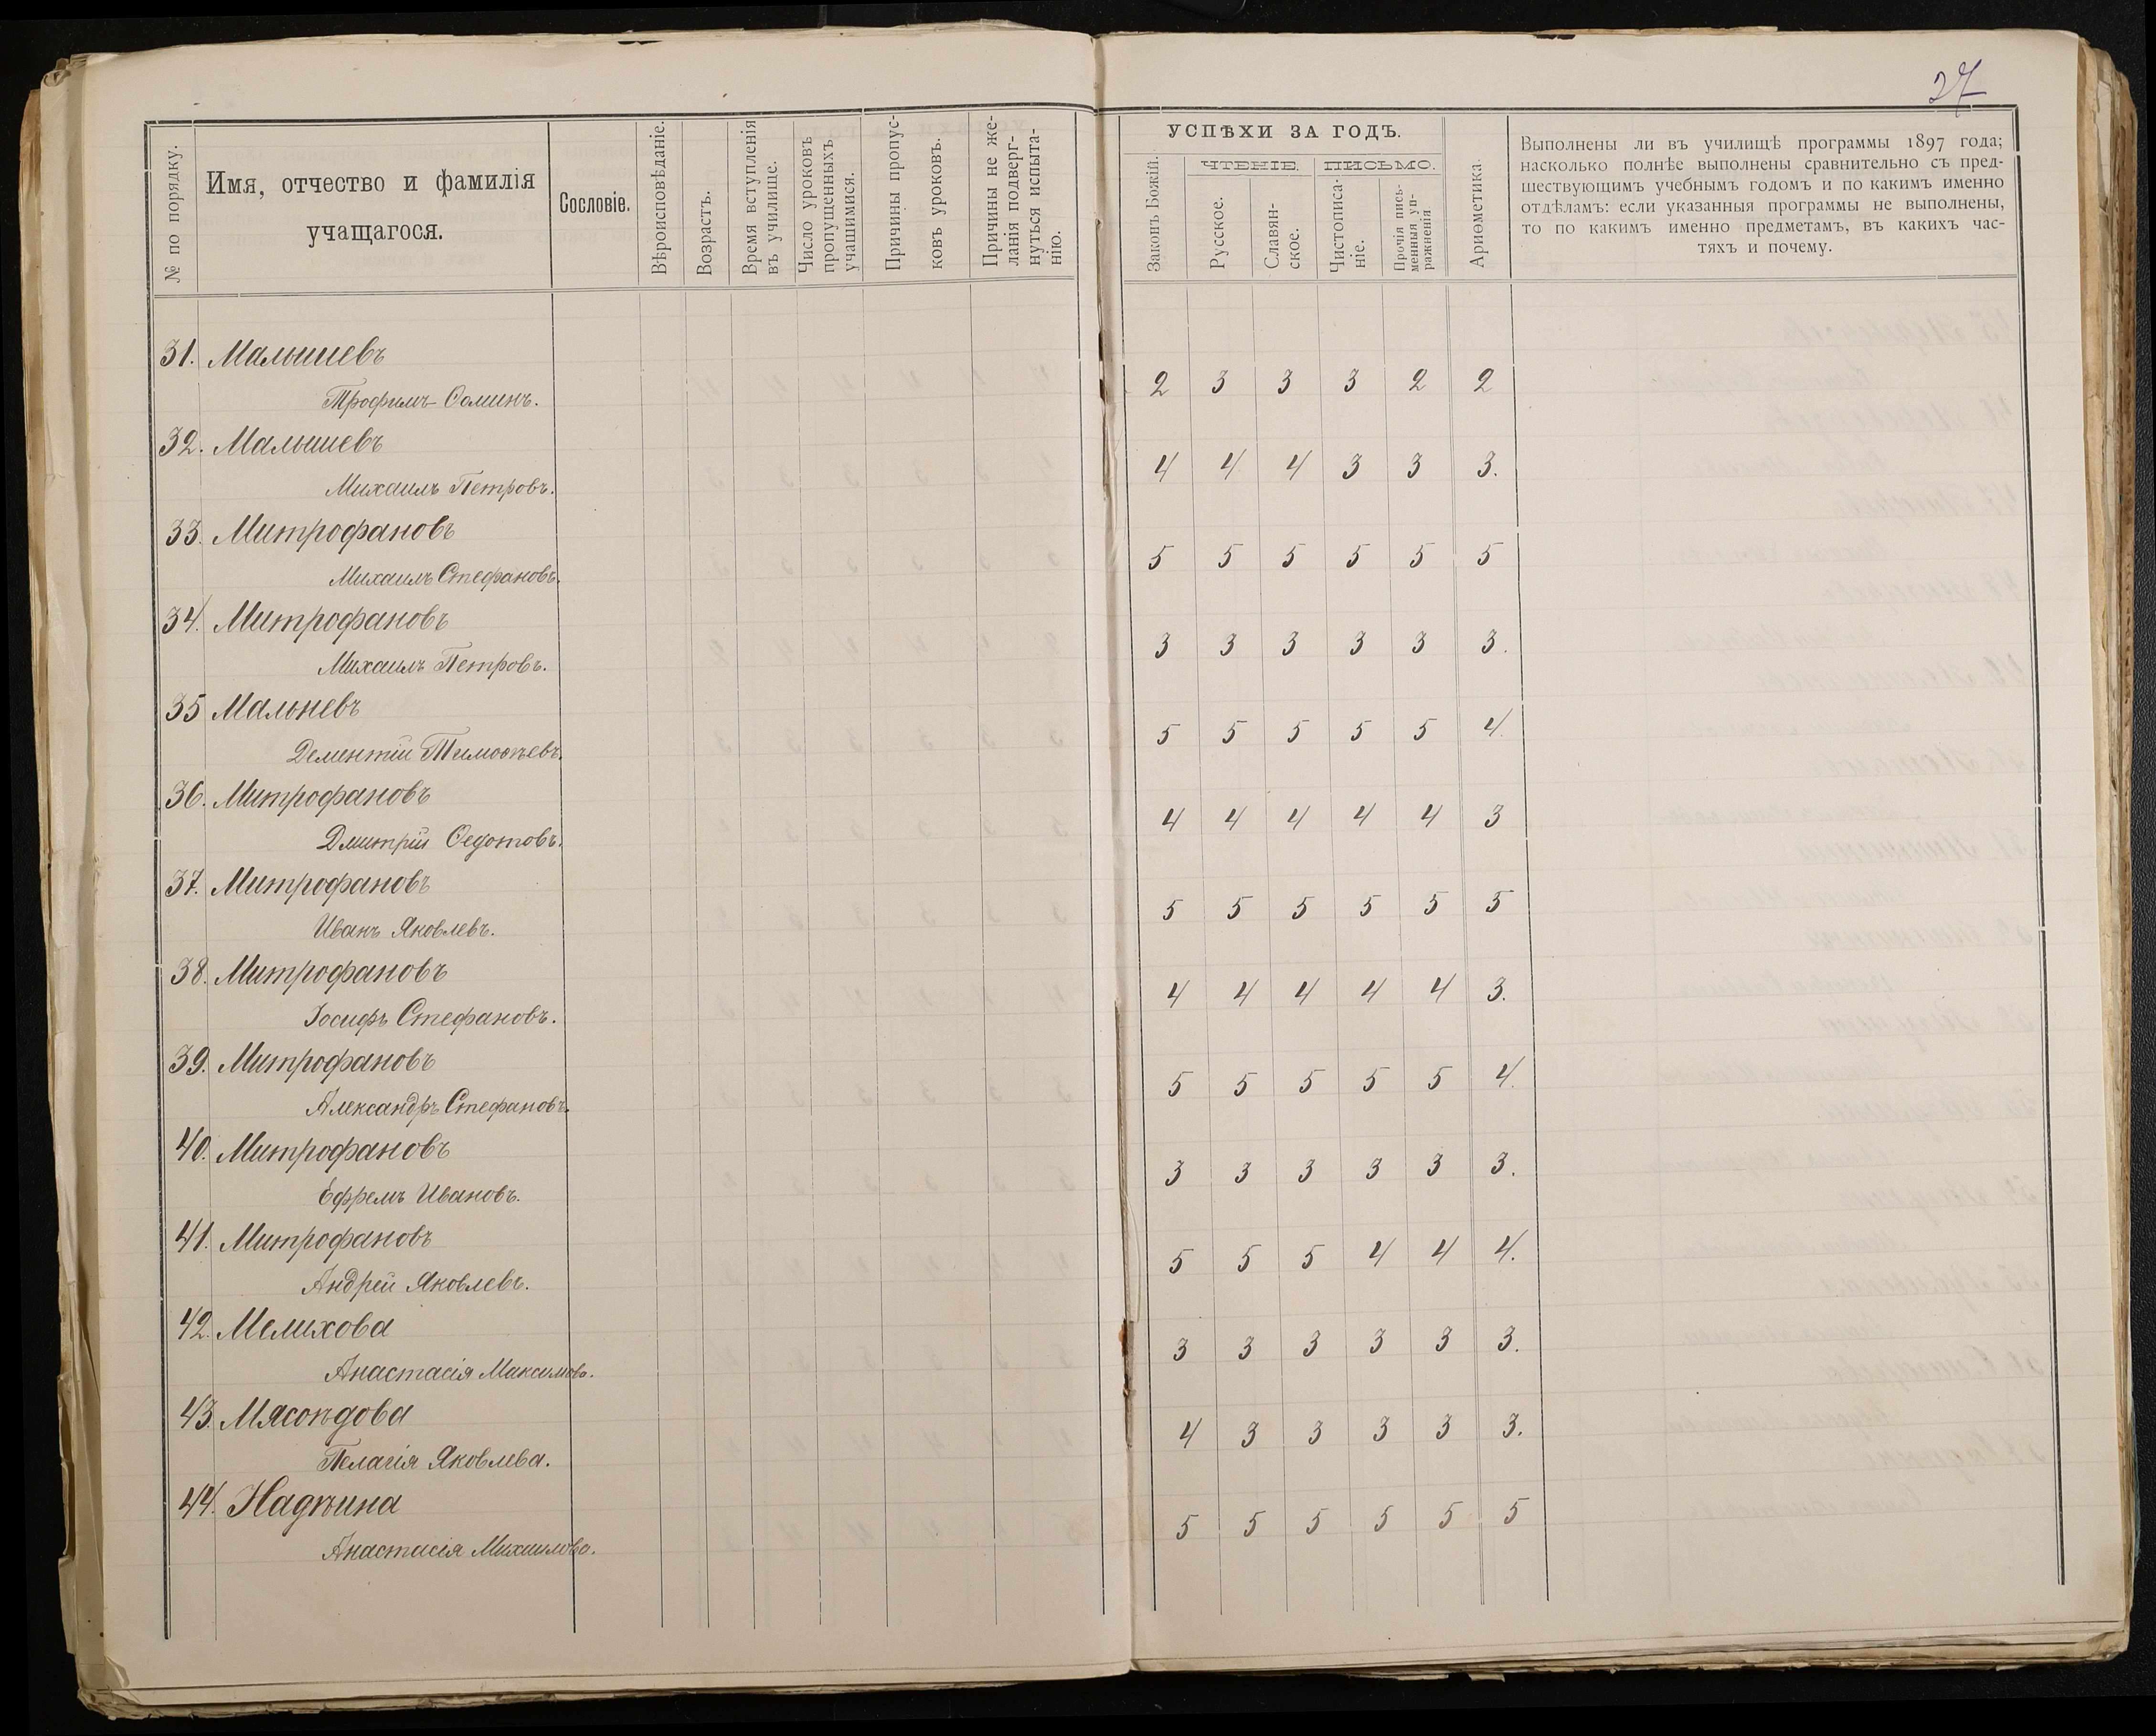 27
№ по порядку.
Имя, отчество и фамилія
учащагося.
Сословіе.
Вѣроисповѣданіе.
Возрастъ.
Время вступленія
въ училище.
Число уроковъ
пропущенныхъ
учащимися.
Причины пропус-
ковъ уроковъ.
Причины не же-
ланія подверг-
нуться испыта-
нію.
УСПѢХИ ЗА ГОДЪ.
Законъ Божій.
ЧТЕНІЕ.
Русское.
Славян-
ское.
ПИСЬМО.
Чистописа-
ніе.
Прочія пись-
менныя уп-
ражненія
Ариѳметика.
Выполнены ли въ училищѣ программы 1897 года;
насколько полнѣе выполнены сравнительно съ пред-
шествующимъ учебнымъ годомъ и по какимъ именно
отдѣламъ: если указанныя программы не выполнены,
то по какимъ именно предметамъ, въ какихъ час-
тяхъ и почему.
31. Малышевъ
Трофимъ Ѳоминъ.
2 3 3 3 2 2
32. Малышевъ
Михаилъ Петровъ.
4 4 4 3 3 3.
33. Митрофановъ
Михаилъ Стефановъ.
5 5 5 5 5 5
34. Митрофановъ
Михаилъ Петровъ.
3 3 3 3 3 3.
35 Мальневъ
Дементій Тимоѳѣевъ.
5 5 5 5 5 4.
36. Митрофановъ
Дмитрій Ѳедотовъ.
4 4 4 4 4 3
37. Митрофановъ
Иванъ Яковлевъ.
5 5 5 5 5 5
38. Митрофановъ
Іосифъ Стефановъ.
4 4 4 4 4 3.
39. Митрофановъ
Александръ Стефановъ.
5 5 5 5 5 4.
40. Митрофановъ
Ефремъ Ивановъ.
3 3 3 3 3 3.
41. Митрофановъ
Андрей Яковлевъ.
5 5 5 4 4 4.
42. Мелихова
Анастасія Максимова.
3 3 3 3 3 3.
43. Мясоѣдова
Пелагія Яковлева.
4 3 3 3 3 3.
44. Надѣина
Анастасія Михаилова.
5 5 5 5 5 5